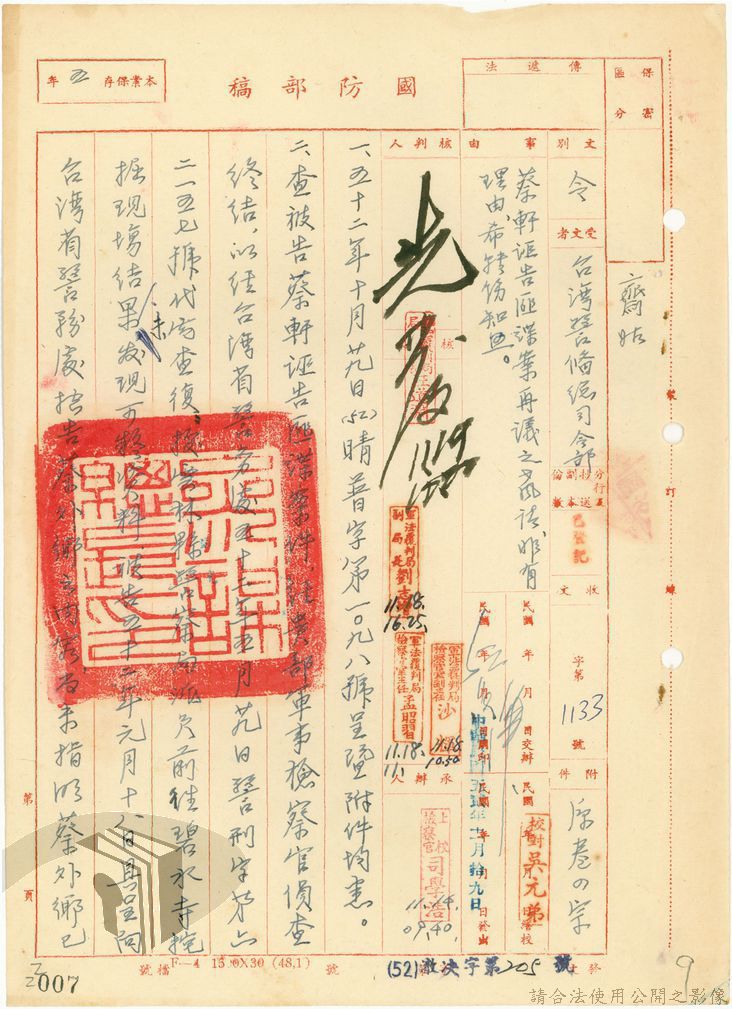 本案保存 五 年
國防部稿
傳遞法
保密
區分
文別 令
受文者 台灣警備總司令部
齋姑
行文份數
分送
副本
已登記
收文 字第 1133 號
附件 原卷四宗
事由
蔡軒誣告匪諜案再議之聲請非有
理由希轉飭知照。
核判人
軍法覆判局
副局長 劉
11.18.
16.25.
軍法覆判局
檢察官室主任 孟昭習
11.18.
軍法覆判局
檢察官室副主任 沙
11.18.
10.50
承辦人
上校檢察官 司學浩
11.14.
09.40.
校對 吳元弟
民國 年 月 日交辦
民國 年 月 日繕校
民國 年 月 日發出
(52)澈決字第205號
一、五十二年十月廿九日(52)晴普字第一〇九八號呈暨附件均悉。
二、查被告蔡軒誣告匪諜案件,經貴部軍事檢察官偵查
終結,以經台灣省警務處五十二年五月廿九日警刑字第六
二一五七號代電查復:據雲林縣警察局派員前往碧水寺挖
掘現場結果未發現可疑資料,被告五十二年元月十八日具呈向
台灣省警務處控告蔡外鄉之內容尚未指明蔡外鄉已
第 頁
檔號
F-4 15.0X30 (48.1)
007
9
請合法使用公開之影像